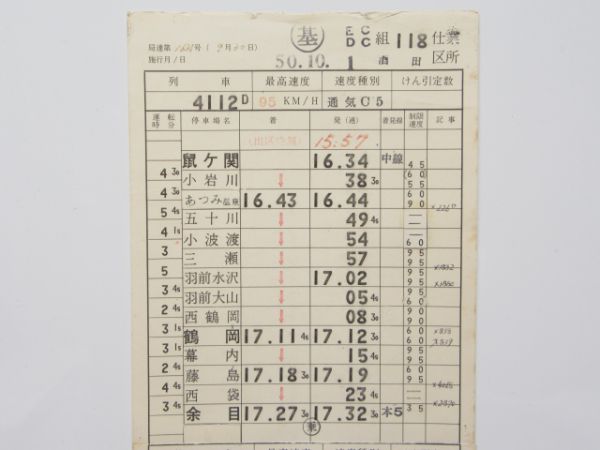 基 EC DC 組 118 仕業
局達第 号(9月20日)
施行月/日 50.10.1 酒田 区所
列車 最高速度 速度種別 けん引定数
4112D 95 KM/H 通気C5
運転時分 停車場名 着 発(通) 着発線 制限速度 記事
15:57
鼠ケ関 16.34 中線 45
4 30 小岩川 ↓ 38 30 60 55
4 30 あつみ温泉 16.43 16.44 60 90
5 45 五十川 ↓ 49 45 ――
4 15 小波渡 ↓ 54 60
3 三瀬 ↓ 57 95 95
5 羽前水沢 ↓ 17.02 95 95
3 45 羽前大山 ↓ 05 45 95 90
2 45 西鶴岡 ↓ 08 30 90 60
3 15 鶴岡 17.11 45 17.12 30 60 90
3 15 幕内 ↓ 15 45 95 95
2 45 藤島 17.18 30 17.19 95 95
4 45 西袋 ↓ 23 45 ――
3 45 余目 17.27 30 17.32 30 本5 35
乗